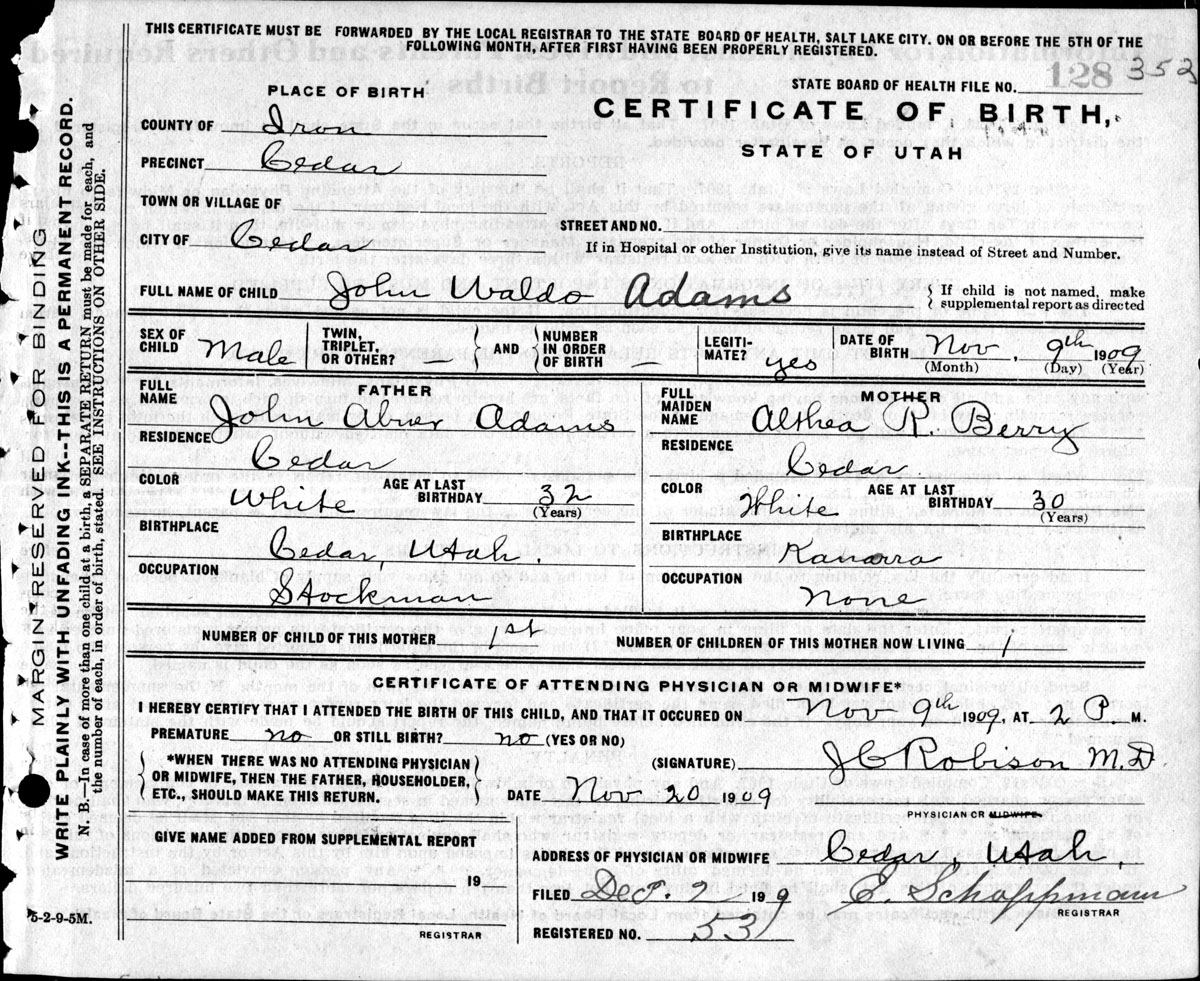 THIS CERTIFICATE MUST BE FORWARDED BY THE LOCAL REGISTRAR TO THE STATE BOARD OF HEALTH, SALT LAKE CITY, ON OR BEFORE THE 5TH OF THE
FOLLOWING MONTH, AFTER FIRST HAVING BEEN PROPERLY REGISTERED.
128 352
STATE BOARD OF HEALTH FILE NO.
PLACE OF BIRTH
CERTIFICATE OF BIRTH,
STATE OF UTAH
COUNTY OF Iron
PRECINCT Cedar
TOWN OR VILLAGE OF
STREET AND NO.
CITY OF Cedar
If in Hospital or other Institution, give its name instead of Street and Number.
FULL NAME OF CHILD John Waldo Adams { If child is not named, make supplemental report as directed
SEX OF CHILD Male TWIN, TRIPLET, OR OTHER? } AND { NUMBER IN ORDER OF BIRTH — LEGITI-MATE? yes DATE OF BIRTH Nov, 9th 1909
(Month) (Day) (Year)
FATHER
FULL NAME John Abner Adams
RESIDENCE Cedar
COLOR White AGE AT LAST BIRTHDAY 32 (Years)
BIRTHPLACE Cedar, Utah.
OCCUPATION Stockman
MOTHER
FULL MAIDEN NAME Althea R. Berry
RESIDENCE Cedar
COLOR White AGE AT LAST BIRTHDAY 30 (Years)
BIRTHPLACE Kanarra
OCCUPATION None
NUMBER OF CHILD OF THIS MOTHER 1st NUMBER OF CHILDREN OF THIS MOTHER NOW LIVING 1
CERTIFICATE OF ATTENDING PHYSICIAN OR MIDWIFE*
I HEREBY CERTIFY THAT I ATTENDED THE BIRTH OF THIS CHILD, AND THAT IT OCCURED ON Nov 9th 1909, AT 2 P. M.
PREMATURE no OR STILL BIRTH? no (YES OR NO)
{ *WHEN THERE WAS NO ATTENDING PHYSICIAN
OR MIDWIFE, THEN THE FATHER, HOUSEHOLDER,
ETC., SHOULD MAKE THIS RETURN. }
(SIGNATURE) J C Robison M.D
DATE Nov 20 1909
PHYSICIAN OR MIDWIFE
GIVE NAME ADDED FROM SUPPLEMENTAL REPORT
19
REGISTRAR
ADDRESS OF PHYSICIAN OR MIDWIFE Cedar, Utah
FILED 19 9 E. Schoppmann
REGISTRAR
REGISTERED NO. 531
MARGIN RESERVED FOR BINDING
WRITE PLAINLY WITH UNFADING INK--THIS A PERMANENT RECORD.
N. B.—In case of more than one child at a birth, a SEPARATE RETURN must be made for each, and
the number of each, in order of birth, stated. SEE INSTRUCTIONS ON OTHER SIDE.
5-2-9-5M.